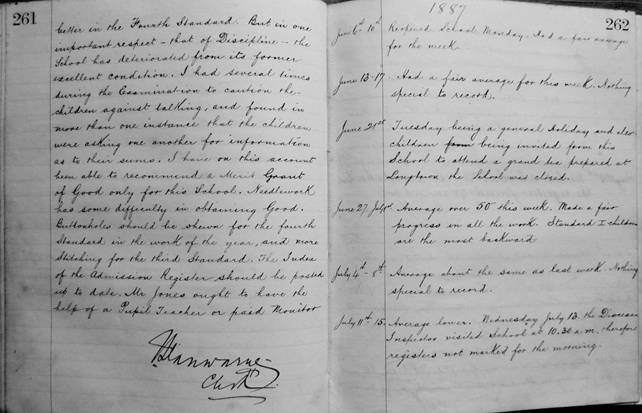 261
better in the Fourth Standard. But in one
important respect - that of Discipline - the
School has deteriorated from its former
excellent condition. I had several times
during the Examination to caution the
children against talking, and found in
more than one instance that the children
were asking one another for information
as to their sums. I have on this account
been able to recommend a Merit Grant
of Good only for this School. Needlework
has some difficulty in obtaining Good.
Buttonholes should be shewn for the fourth
Standard in the work of the year, and more
Stitching for the third Standard. The Index
of the Admission Register should be posted
up to date. Mr Jones ought to have the
help of a Pupil Teacher or paid Monitor
Clerk
1887
262
June 6th 10th Reopened School Monday. Had a fair average
for the week.
June 13-17. Had a fair average for this week. Nothing
special to record.
June 21st Tuesday being a general Holiday and the
children from being invited from this
School to attend a grand tea prepared at
Longtown the School was closed.
June 27 July 1st Average over 50 this week. Made a fair
progress in all the work. Standard I children
are the most backward
July 4th - 8th Average about the same as last week. Nothing
special to record.
July 11th 15. Average lower. Wednesday July 13. the Diocesan
Inspector visited School at 10.30 a.m. therefore
registers not marked for the morning.